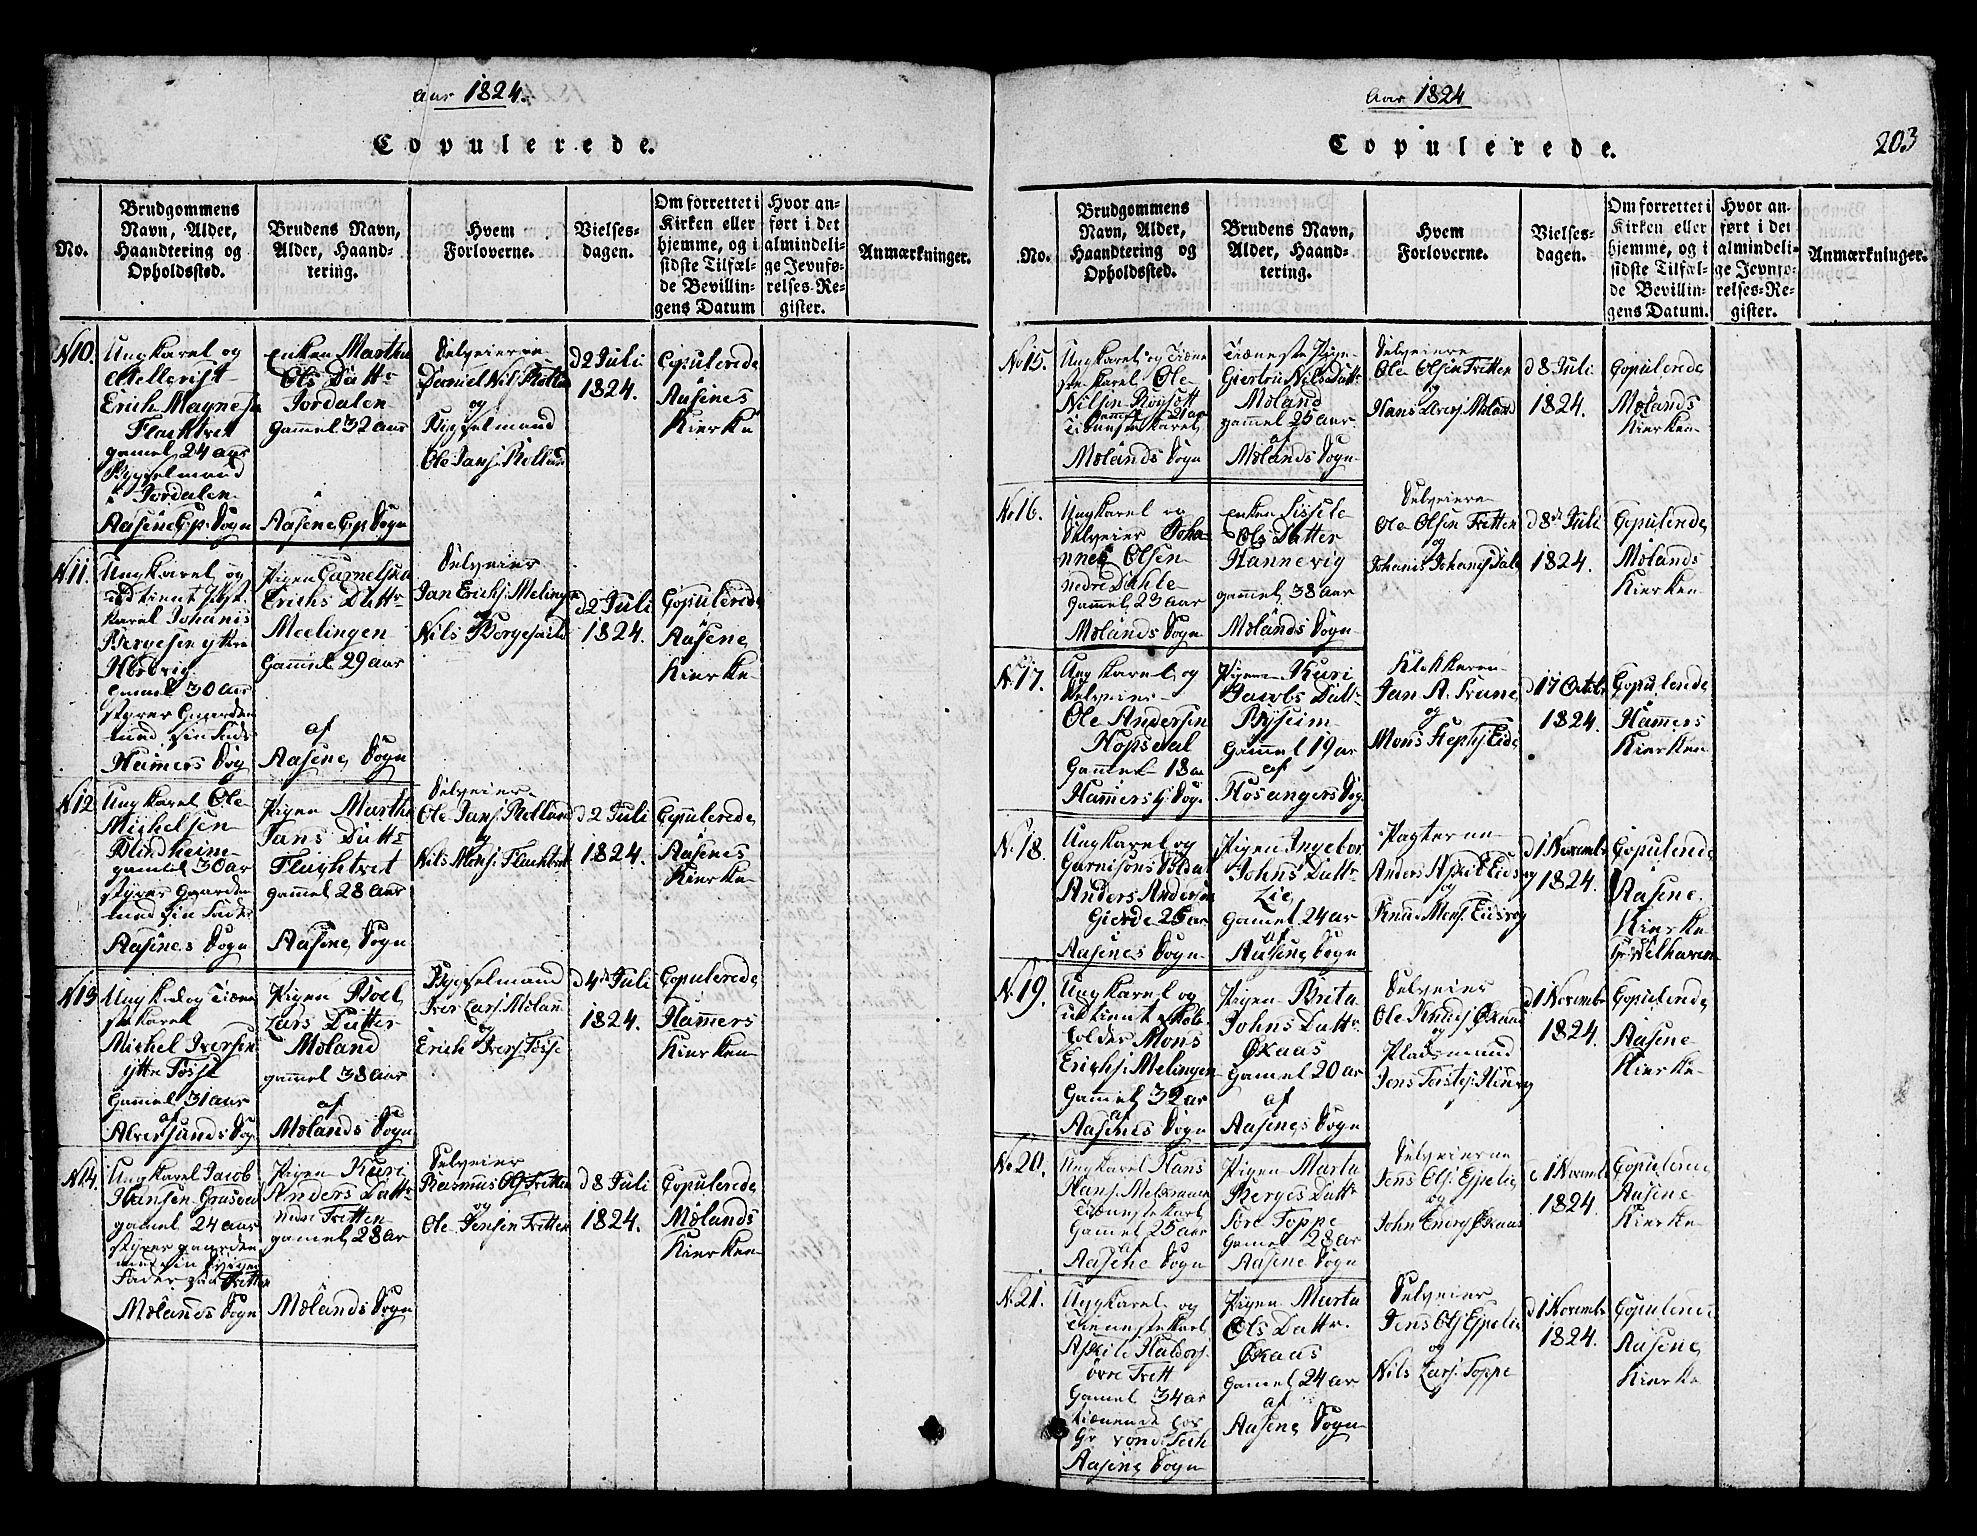 Aar 1824.
Copulerede.
No.
Brudgommens
Navn, Alder,
Haandtering og
Opholdssted.
Brudens Navn,
Alder, Haand-
tering.
Hvem
Forloverne.
Vielses-
dagen.
Om forrettet i
Kirken eller
hjemme, og i
sidste Tilfæl-
de Bevillin-
gens Datum
Hvor an-
ført i det
almindeli-
ge Jevnfø-
relses-Re-
gister.
Anmærkninger.
N10.
Ungkarel og
Erich Magnes
gamel 24 aar
Bygselmand
i Jordalen
Aasene Gp. Sogn
Enken Martha
Ols Dattr
Jordalen
gammel 32 aar
Aasene Gp Sogn
Selveierne
Daniel Nils Rolland
og
Bygselmand
Ole Jans. Rolland
d 2 Juli
1824.
Copulerede
Aasenes
Kierke
N11.
Ungkarel og
karel Johanis
Bergesen yttre
Hordvig
Gammel 30 Aar
styrer Gaarden
med sin Fader
Hammers Sog
Pigen
Erichs Dattr
Meelingen
Gammel 29 aar
af
Aasene Sogn
Selveier
Jan Erichs. Melingen
og
Nils
d 2 Juli
1824.
Copulerede
Aasene
Kierke
N12
Ungkarel Ole
Michelsen
Blindheim
gamlel 30 ar
styrer Gaarden
med sin Fader
Aasenes Sogn
Pigen Martha
Jans Dattr
Flaghtvet
gammel 28 aar
Aasene Sogn
Selveier
Ole Jans. Rolland
og
Nils Mons. Flachtvet
d 2 Juli
1824.
Copulerede
Aasenes
Kierke
N13
Ungk og Tiæne
stekarel
Michel Iversen
ytre Tosse
Gammel 31 aar
af
Alversunds Sog
Pigen Boel
Lars Datter
Moland
gammel 38 aar
af
Molands Sogn
Bygselmand
Iver Lars. Moland
og
Erich Ivers. Tosse
d 4de Juli
1824.
Copulerede
Hammers
Kierken
N14.
Ungkarel Jacob
Hansen
gamel 24 aar
styrer gaarden
Fader
Molands Sogn
Pigen Kuri
Anders Dattr
nedre Tretten
gamel 28 ar
Molands Sogn
Selveier
Rasmus Ols Tretten
og
Ole Jensen Tretten
d 8 Juli
1824.
Copulerede
Molands
Kierken
Aar 1824
Copulerede.
203
No.
Brudgommens
Navn, Alder,
Haandtering og
Opholdssted.
Brudens Navn,
Alder, Haand-
tering.
Hvem
Forloverne.
Vielses-
dagen.
Om forrettet i
Kirken eller
hjemme, og i
sidste Tilfæl-
de Bevillin-
gens Datum.
Hvor an-
ført i det
almindeli-
ge Jevnfø-
relses-Re-
gister.
Anmærkninger.
No 15.
Ungkarel og Tiæne
stekarel Ole
Nilsen
Gammel 21 aar
Molands Sogn
Tiæneste Pigen
Giertrü Nils Dattr
Moland
gammel 25 aar
af
Molands Sogn
Selveiere
Ole Olsen Tretten
og
Hans Moland
d 8 Juli
1824.
Copulerede
Molands
Kierken
No 16.
Ungkarel og
Selveier Joha
nnes Olsen
nedre Dahle
Gammel 23 Aar
Molands Sogn
Enken Sissele
Ols Datter
Hannevig
gammel 38 aar
Molands Sogn
Selveiere
Ole Olsen Tretten
og
Johanis Johanis Dale
d 8de Juli
1824.
Copulerede
Molands
Kierken
N17.
Ung karel og
Selveier
Ole Andersen
Hopsdal
Gammel 18 a
Hammers G. Sog.
Pigen Kuri
Jacobs Dattr
Gammel 19 ar
af
Hosangers Sog
Klokkeren
Jan A. Trune
og
Mons Steph. Eide
d 17 Octob
1824.
Copulerede
Hammers
Kierken
N. 18.
Ungkarel og
Garnisons Soldat
Anders Andersen
Gierde 25 ar
Aasenes Sogn
Pigen Ingebor
Johns Dattr
Lie
Gamel 24 ar
af
Aasene Sogn
Pagterne
Anders
og
Knud Mons. Eidsvog
d 1 Novembr
1824.
Copulerede
Aasene
Kierke
N. 19.
Ungkarel og
holder Mons
Erichs. Melingen
Gamel 32 ar
af
Aasenes Sogn
Pigen Brita
Johns Dattr
Økaas
Gamel 20 ar
af
Aasenes Sogn
Selveier
Ole Knuds. Økaas
og
Pladsmand
d 1 Novembr
1824.
Copulerede
Aasene
Kierke
No 20.
Ungkarel Hans
Tiænestekarl
Gamel 25 aar
af
Aasene Sogn
Pigen Marta
Berges Dattr
Tore Toppe
Gamel 28 ar
Aasene Sogn
Selveierne
Jens Ols. Espelie
og
John Økaas
d 1 Novemb
1824.
Copulered
Aasene
Kierke
N. 21.
Ungkarel og
Tienestekarl
Askild Haldors.
övre Trett
Gamel 34 ar
tiænende hos
Aasene Sogn
Pigen Marta
Ols Dattr.
Økaas
Gamel 24 ar
af
Aasene Sogn
Selveier
Jens Ols. Espelie
og
Nils Lars. Toppe
d 1 Novembr
1824.
Copulered
Aasene
Kierke